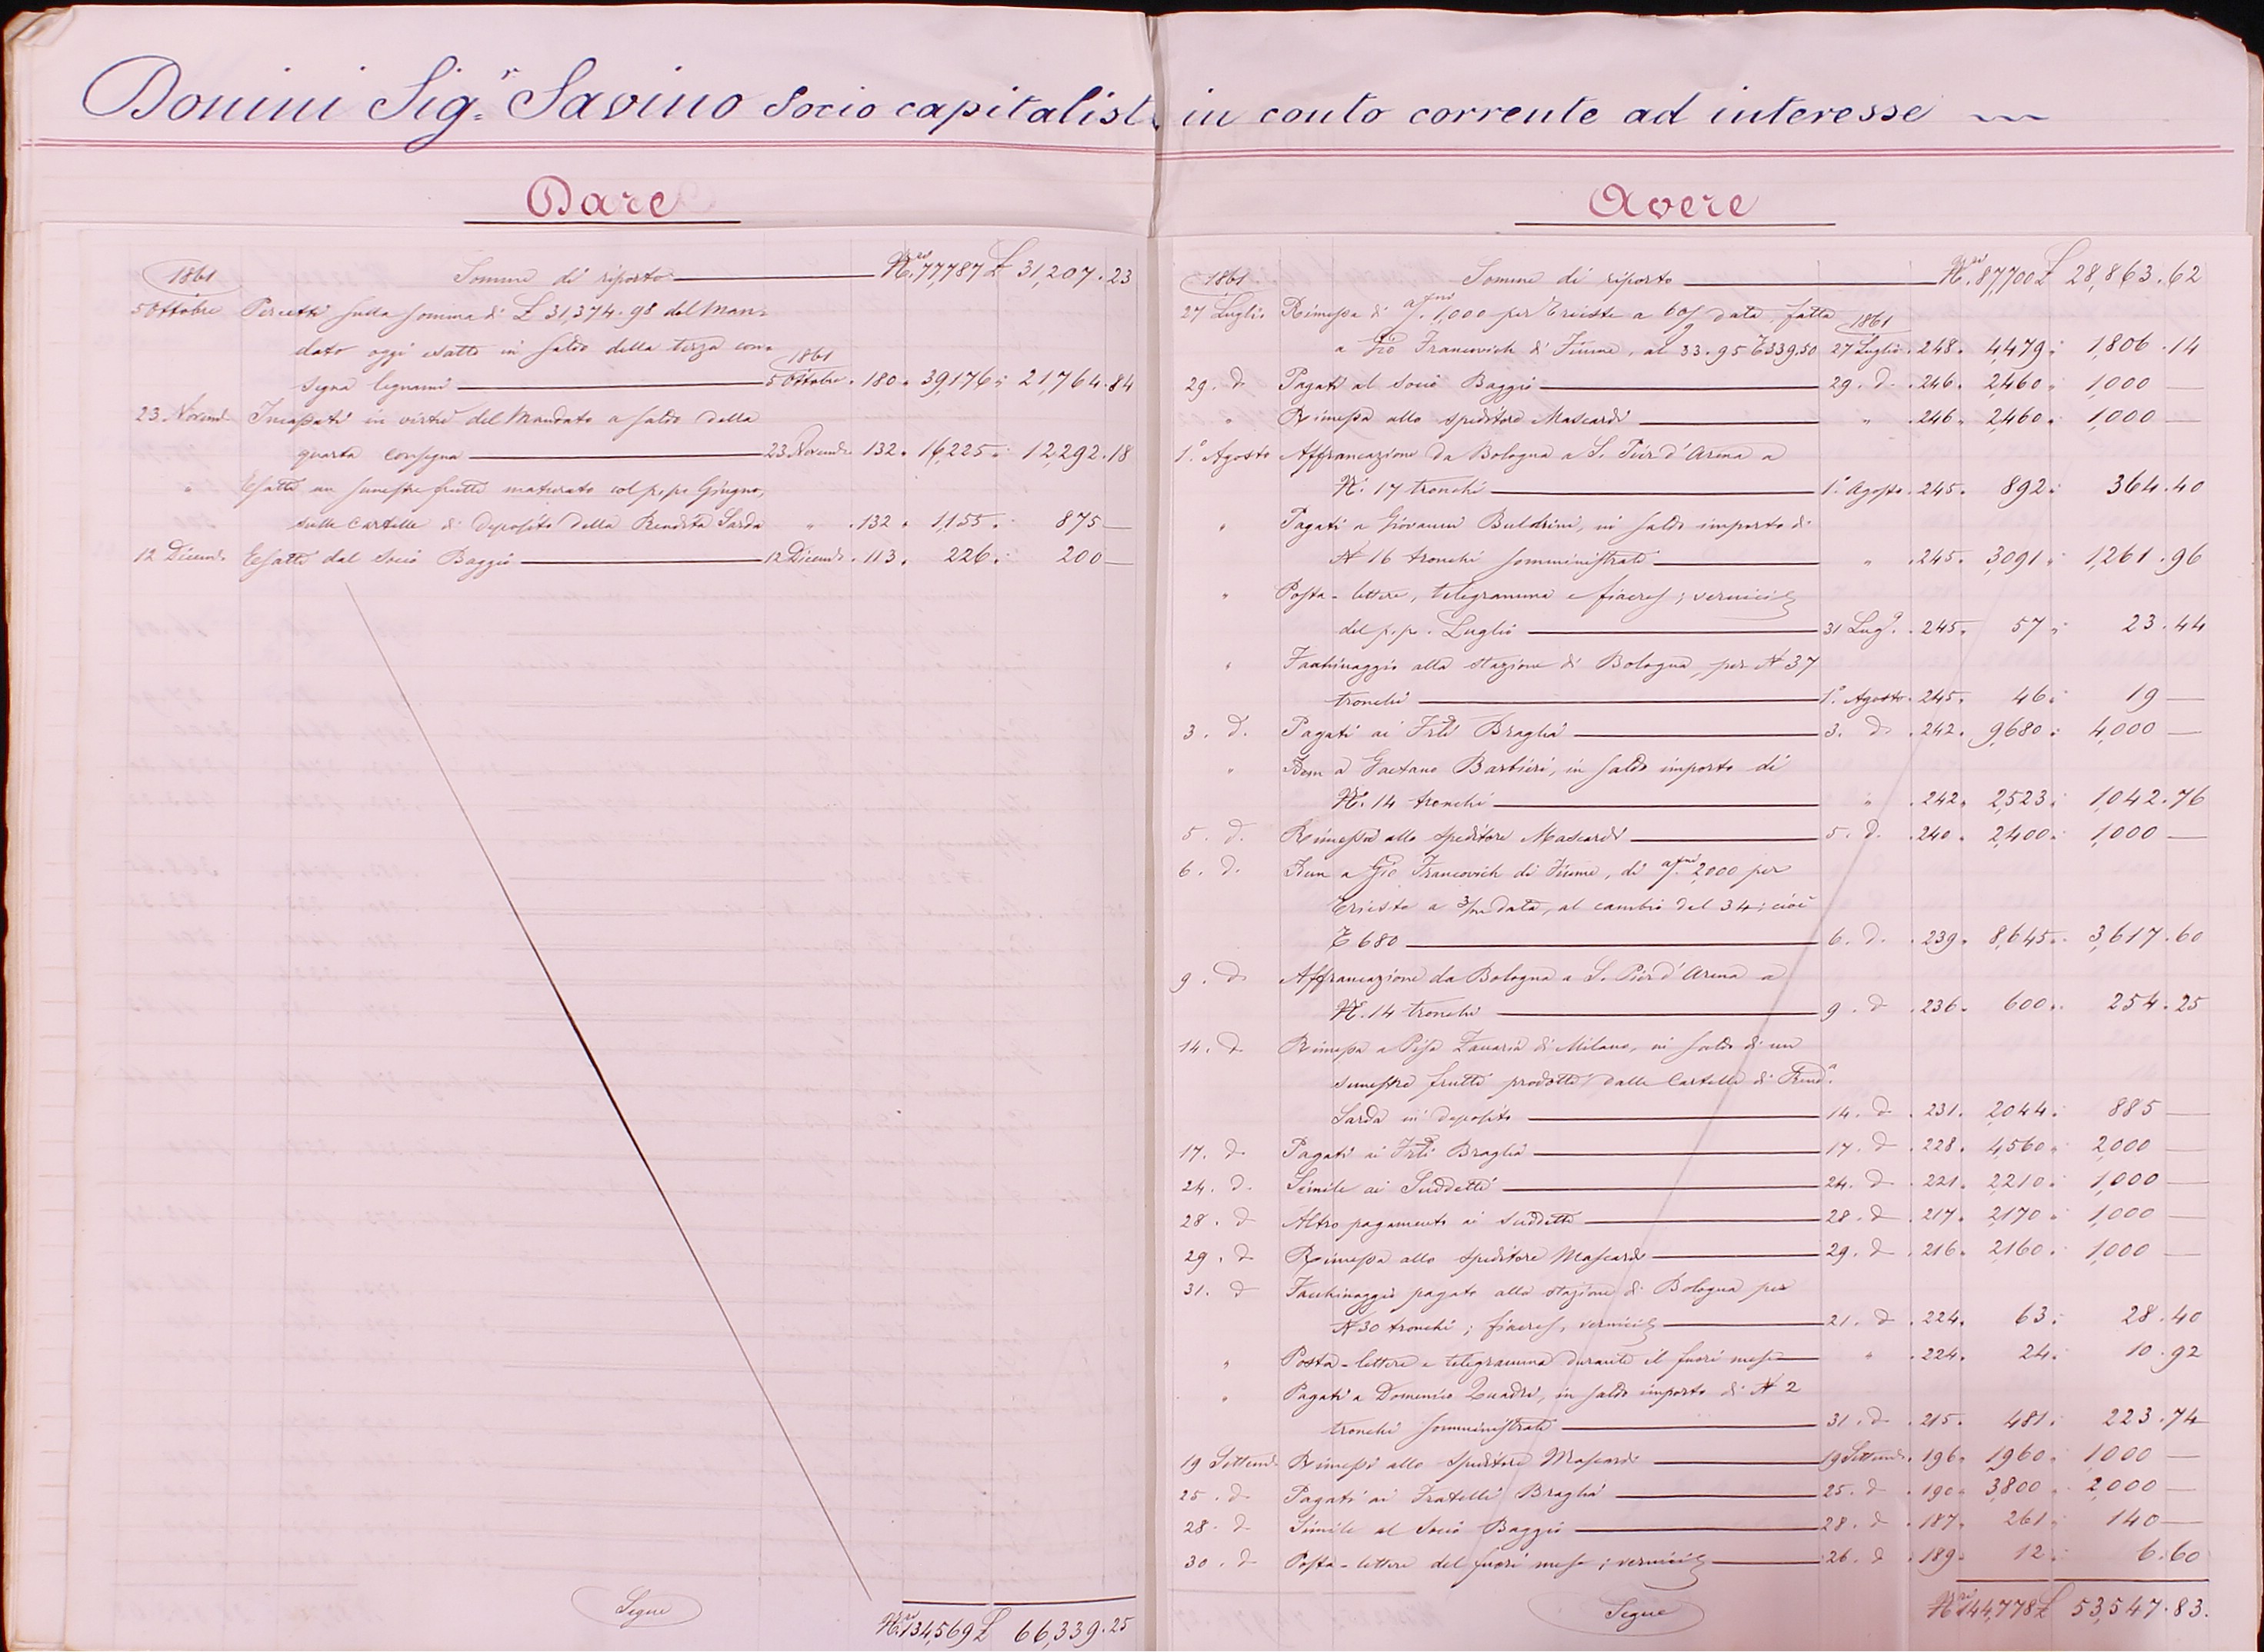 Donini Sig.r Savino Socio capitalista in conto corrente ad interesse
Dare
1861 Somma di riporto N.ri 77,787 £ 31,207.23
5 Ottobre Percetti sulla somma di £ 31,374.98 del Man-
dato oggi esatto in saldo della terza con- 1861
segna legnami 5 Ottobre. 180. 39,176. 21,764.84
23 Novemb. Incassati in virtù del Mandato a saldo della
quarta consegna 23 Novemb. 132. 16,225. 12,292.18
" Esatto un semestre frutti maturato col p.p. Giugno,
sulle Cartelle di deposito della Rendita Sarda " .132. 1,155. 875 —
12 Dicemb. Esatti dal Socio Baggio 12 Dicemb. 113. 226. 200 —
Segue N.ri 134,569 £ 66,339.25
Avere
1861 Somma di riporto N.ri 87,700 £ 28,863.62
27 Luglio Rimessa di 1,000 per Trieste a 60/g data, fatta 1861
a Gio Francovich di Fiume, al 33.95 339.50 27 Luglio. 248. 4,479. 1,806.14
29. d. Pagati al Socio Baggio 29. d. .246. 2,460. 1,000 —
" Rimessa allo speditore Mascardi " .246. 2,460. 1,000 —
1.° Agosto Affrancazione da Bologna a S. Pier d'Arena a
N.° 17 tronchi 1.° Agosto. 245. 892. 364.40
" Pagati a Giovanni Buldrini, in saldo importo di
N 16 tronchi somministrati " .245. 3,091. 1,261.96
" Posta-lettere, telegramma e fiacres;
del p.p. Luglio 31 Lug.o .245. 57. 23.44
" Facchinaggio alla stazione di Bologna, per N 37
tronchi 1.° Agosto. 245. 46. 19 —
3. d. Pagati ai F.lli Braglia 3. d. .242. 9,680. 4,000 —
" Idem a Gaetano Barbieri, in saldo importo di
N.° 14 tronchi " .242. 2,523. 1,042.76
5. d. Rimessa allo speditore Mascardi 5. d. .240. 2,400. 1,000 —
6. d. Idem a Gio Francovich di Fiume, di 2,000 per
Trieste a 3/m data, al cambio del 34; cioè
680 6. d. .239. 8,645. 3,617.60
9. d. Affrancazione da Bologna a S. Pier d'Arena a
N.° 14 tronchi 9. d. .236. 600. 254.25
14. d. Rimessa a Pisa Zaccaria di Milano, in saldo di un
semestre frutti prodotti dalle Cartelle di Rend.a
Sarda in deposito 14. d. .231. 2,044. 885 —
17. d. Pagati ai F.lli Braglia 17. d. .228. 4,560. 2,000 —
24. d. Simile ai Suddetti 24. d. .221. 2,210. 1,000 —
28. d. Altro pagamento ai suddetti 28. d. .217. 2,170. 1,000 —
29. d. Rimessa allo speditore Mascardi 29. d. .216. 2,160. 1,000 —
31. d. Facchinaggio pagato alla stazione di Bologna per
N 30 tronchi; fiacres, 21. d. .224. 63. 28.40
" Posta-lettere e telegramma durante il fuori mese " .224. 24. 10.92
" Pagati a Domenico Quadri, in saldo importo di N 2
tronchi somministrati 31. d. .215. 481. 223.74
19 Settemb. Rimessi allo speditore Mascardi 19 Settemb. 196. 1,960. 1000 —
25. d. Pagati ai Fratelli Braglia 25. d. .190. 3,800. 2,000 —
28. d. Simile al Socio Baggio 28. d. .187. 261. 140 —
30. d. Posta-lettere del fuori mese; 26. d. .189. 12. 6.60
Segue N.ri 144,778 £ 53,547.83.